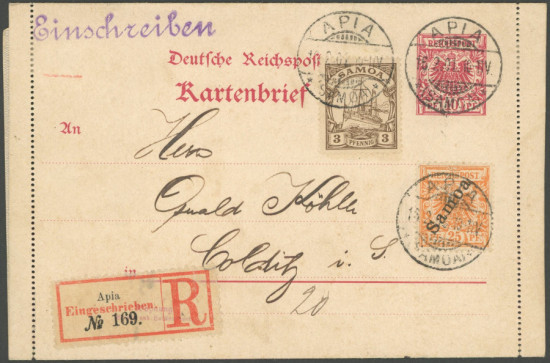 Einschreiben
Deutsche Reichspost
Kartenbrief
An
Herrn
Oswald Köhler
Colditz i. S.
in
20
APIA
SAMOA
APIA
REICHSPOST
SAMOA
3 PFENNIG 3
Samoa
25
APIA
SAMOA
Apia
Eingeschrieben.
№ 169.
R